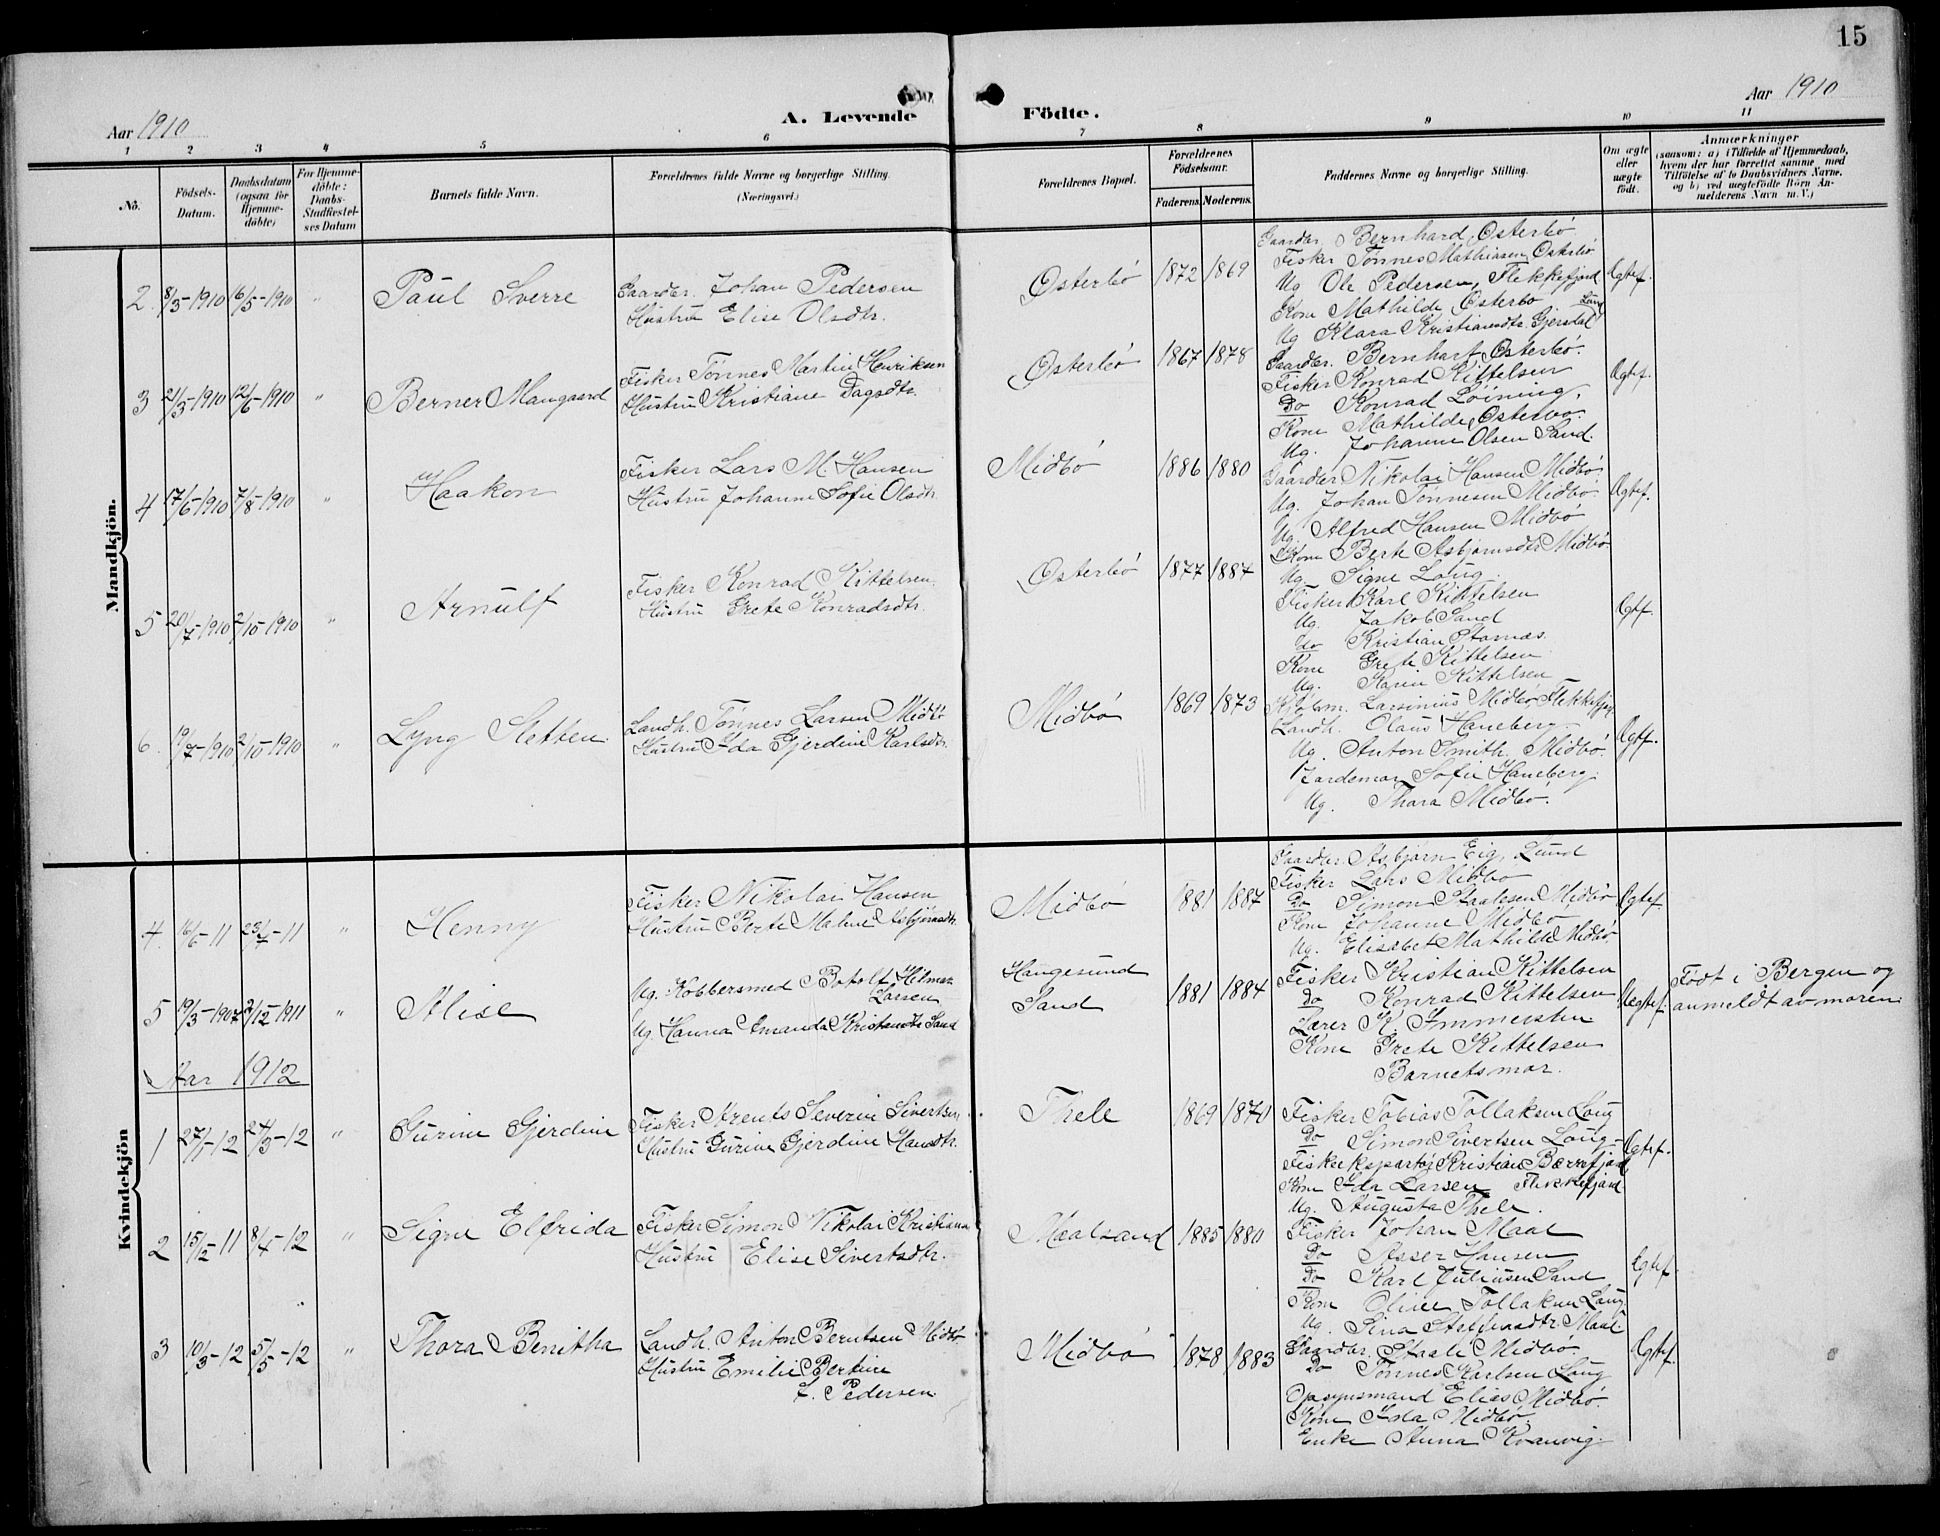 15
Aar 1910
A. Levende Födte.
Aar 1910
1 2 3 4 5 6 7 8 9 10 11
No.
Födsels-Datum.
Daabsdatum (ogsaa for Hjemme-döbte)
For Hjemme-döbte: Daabs-Stadfæstel-ses Datum
Barnets fulde Navn.
Forældrenes fulde Navne og borgerlige Stilling.
(Næringsvei.)
Forældrenes Bopæl.
Forældrenes Födselsaar.
Faderens. Moderens.
Faddernes Navne og borgerlige Stilling.
Om ægte eller uægte födt.
Anmærkninger
(saasom: a) i Tilfælde af Hjemmedaab,
hvem der har forrettet samme, med
Tilföielse af to Daabsvidners Navne,
og b) ved uægtefödte Börn An-
melderens Navn m. V.)
Mandkjön.
2. 8/3-1910 16/5-1910 "
Paul Sverre
Gaardbr. Johan Pedersen
Hustru Elise Olsdtr.
Østerbó
1872 1869
Gaardbr. Bernhard Østerbó
Fisker Tønnes Mathiasen Østerbó
Ug Ole Pedersen, Flekkefjord
Kone Mathilde Østerbo
Ug Klara Kristiansdtr. Gjersdal
Ægtef.
3 21/3-1910 12/6-1910 "
Berner Mangaard
Fisker Tønnes Martin Henriksen
Hustru Kristiane Dagsdtr.
Østerbó
1867 1878
Gaardbr. Bernhart Østerbó.
Fisker Konrad Kittelsen
Do Konrad Lóining,
Kone Mathilde Østerbo.
Ug. Johanne Olsen Sand.
Ægtef.
4 17/6-1910 7/8-1910 "
Haakon
Fisker Lars M. Hansen
Hustru Johanne Sofie Olsdtr.
Midbó
1886 1880
Gaardbr Nikolai Hansen Midbó
Ug. Johan Tonnesen Midbó
Ug. Alfred Hansen Midbó
Kone Berte Asbjørnsdtr. Midbó
Ug. Signe Laug.
Ægtef.
5 20/7-1910 2/10-1910 "
Arnulf
Fisker Konrad Kittelsen.
Hustru Grete Konradsdtr.
Østerbó
1877 1887
Fisker Karl Kittelsen
Ug. Jakob Sand
do Kristian Stornæs
Kone Grete Kittelsen
Ug. Karin Kittelsen
Ægtf.
6. 19/7-1910 2/10-1910 "
Lyng Sletten.
Landh. Tønnes Larsen Midbó
Hustru Ida Gjerdine Karlsdtr.
Midbó
1869 1873
Larsinius Midbó Flekkefjord
Landh. Olaus Haneberg
Ug. Anton Smith, Midbó.
Jordemor Sofie Haneberg.
Ug. Thora Midbó.
Ægtf.
Kvindekjön
4. 16/6-11 -11 "
Henny
Fisker Nikolai Hansen
Hustru Berte Malene Asbjørnsdtr.
Midbó
1881 1887
Gaardbr. Asbjørn Eig, Lund
Fisker Lars Midbo
Do Simon Staalesen Midbó
Kone Johanne Midbo
Ug. Elisabet Mathilde Midbó,
Ægtef.
5 19/3-1907 3/12-1911 "
Alise
Ug. Kobbersmed Botolf Hilmar Larsen
Ug. Hanna Amanda Kristiansdtr Sand
Haugesund
Sand
1881 1884
Fisker Kristian Kittelsen
do Konrad Kittelsen
Lærer K. Immerstein
Kone Grete Kittelsen
Barnets mor.
Uægtef.
Født i Bergen og
anmeldt av moren
Aar 1912
1 27/1-12 24/3-12 "
Gurine Gjerdine
Fisker Arents Severin Sivertsen
Hustru Gurine Gjerdine Hansdtr.
Thele
1869 1870
Fisker Tobias Tollaksen Laug
Do Simon Sivertsen Laug
Fiskeeksportør Kristian Bærrefjord
Kone Ida Larsen Flekkefjord
Ug. Augusta Thele.
Ægtef.
2 15/12-11 8/4-12 "
Signe Elfrida
Fisker Simon Nikolai Kristiansen
Hustru Elise Sivertsdtr.
Maalsand
1885 1880
Fisker Johan Maal
Do Asser Hansen
Do Karl Juliusen Sand
Kone Oline Tollaksen Laug
Ug. Sina Steffensdtr. Maal
Ægtef.
3 10/3-12 5/5-12 "
Thora Benitha
Landh. Anton Berntsen Midbó
Hustru Emilie Bertine
f. Pedersen.
Midbó
1878 1883
Gaardbr. Staale Midbó
Do Tønnes Karlsen Laug
Opsynsmand Elias Midbó.
Kone Ida Midbó.
Enke Anna Kvanvig.
Ægtef.